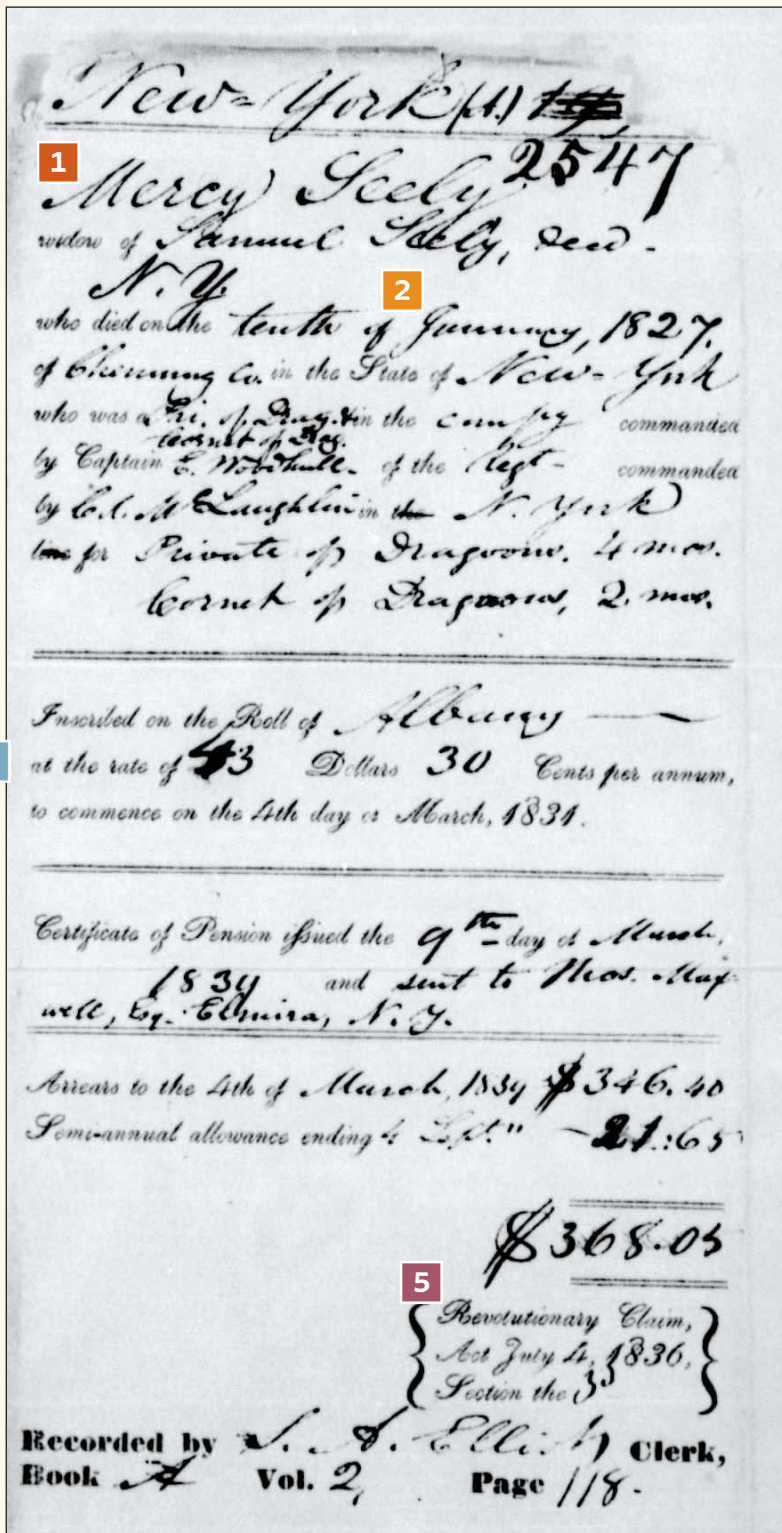 New-York (A.)
1
2547
Mercy Seely
widow of Samuel Seely, decd.
N.Y.
2
who died on the tenth of January, 1827,
of Chemung Co. in the State of New-York
who was a Pri. of Drag. & in the compy commanded
Cornet of Drag.
by Captain E. Woodhull of the Regt commanded
by Col. McLaughlin in the N. York
line for Private of Dragoons. 4 mos.
Cornet of Dragoons, 2. mos.
Inscribed on the Roll of Albany —
at the rate of 43 Dollars 30 Cents per annum,
to commence on the 4th day of March, 1831.
Certificate of Pension issued the 9th day of March,
1839 and sent to Thos. Max-
well, Esq. Elmira, N.Y.
Arrears to the 4th of March, 1839 $346.40
Semi-annual allowance ending 4 Sept. " 21.65
$368.05
5
Revolutionary Claim,
Act July 4, 1836,
Section the 3d
Recorded by Clerk,
Book A Vol. 2, Page 118.